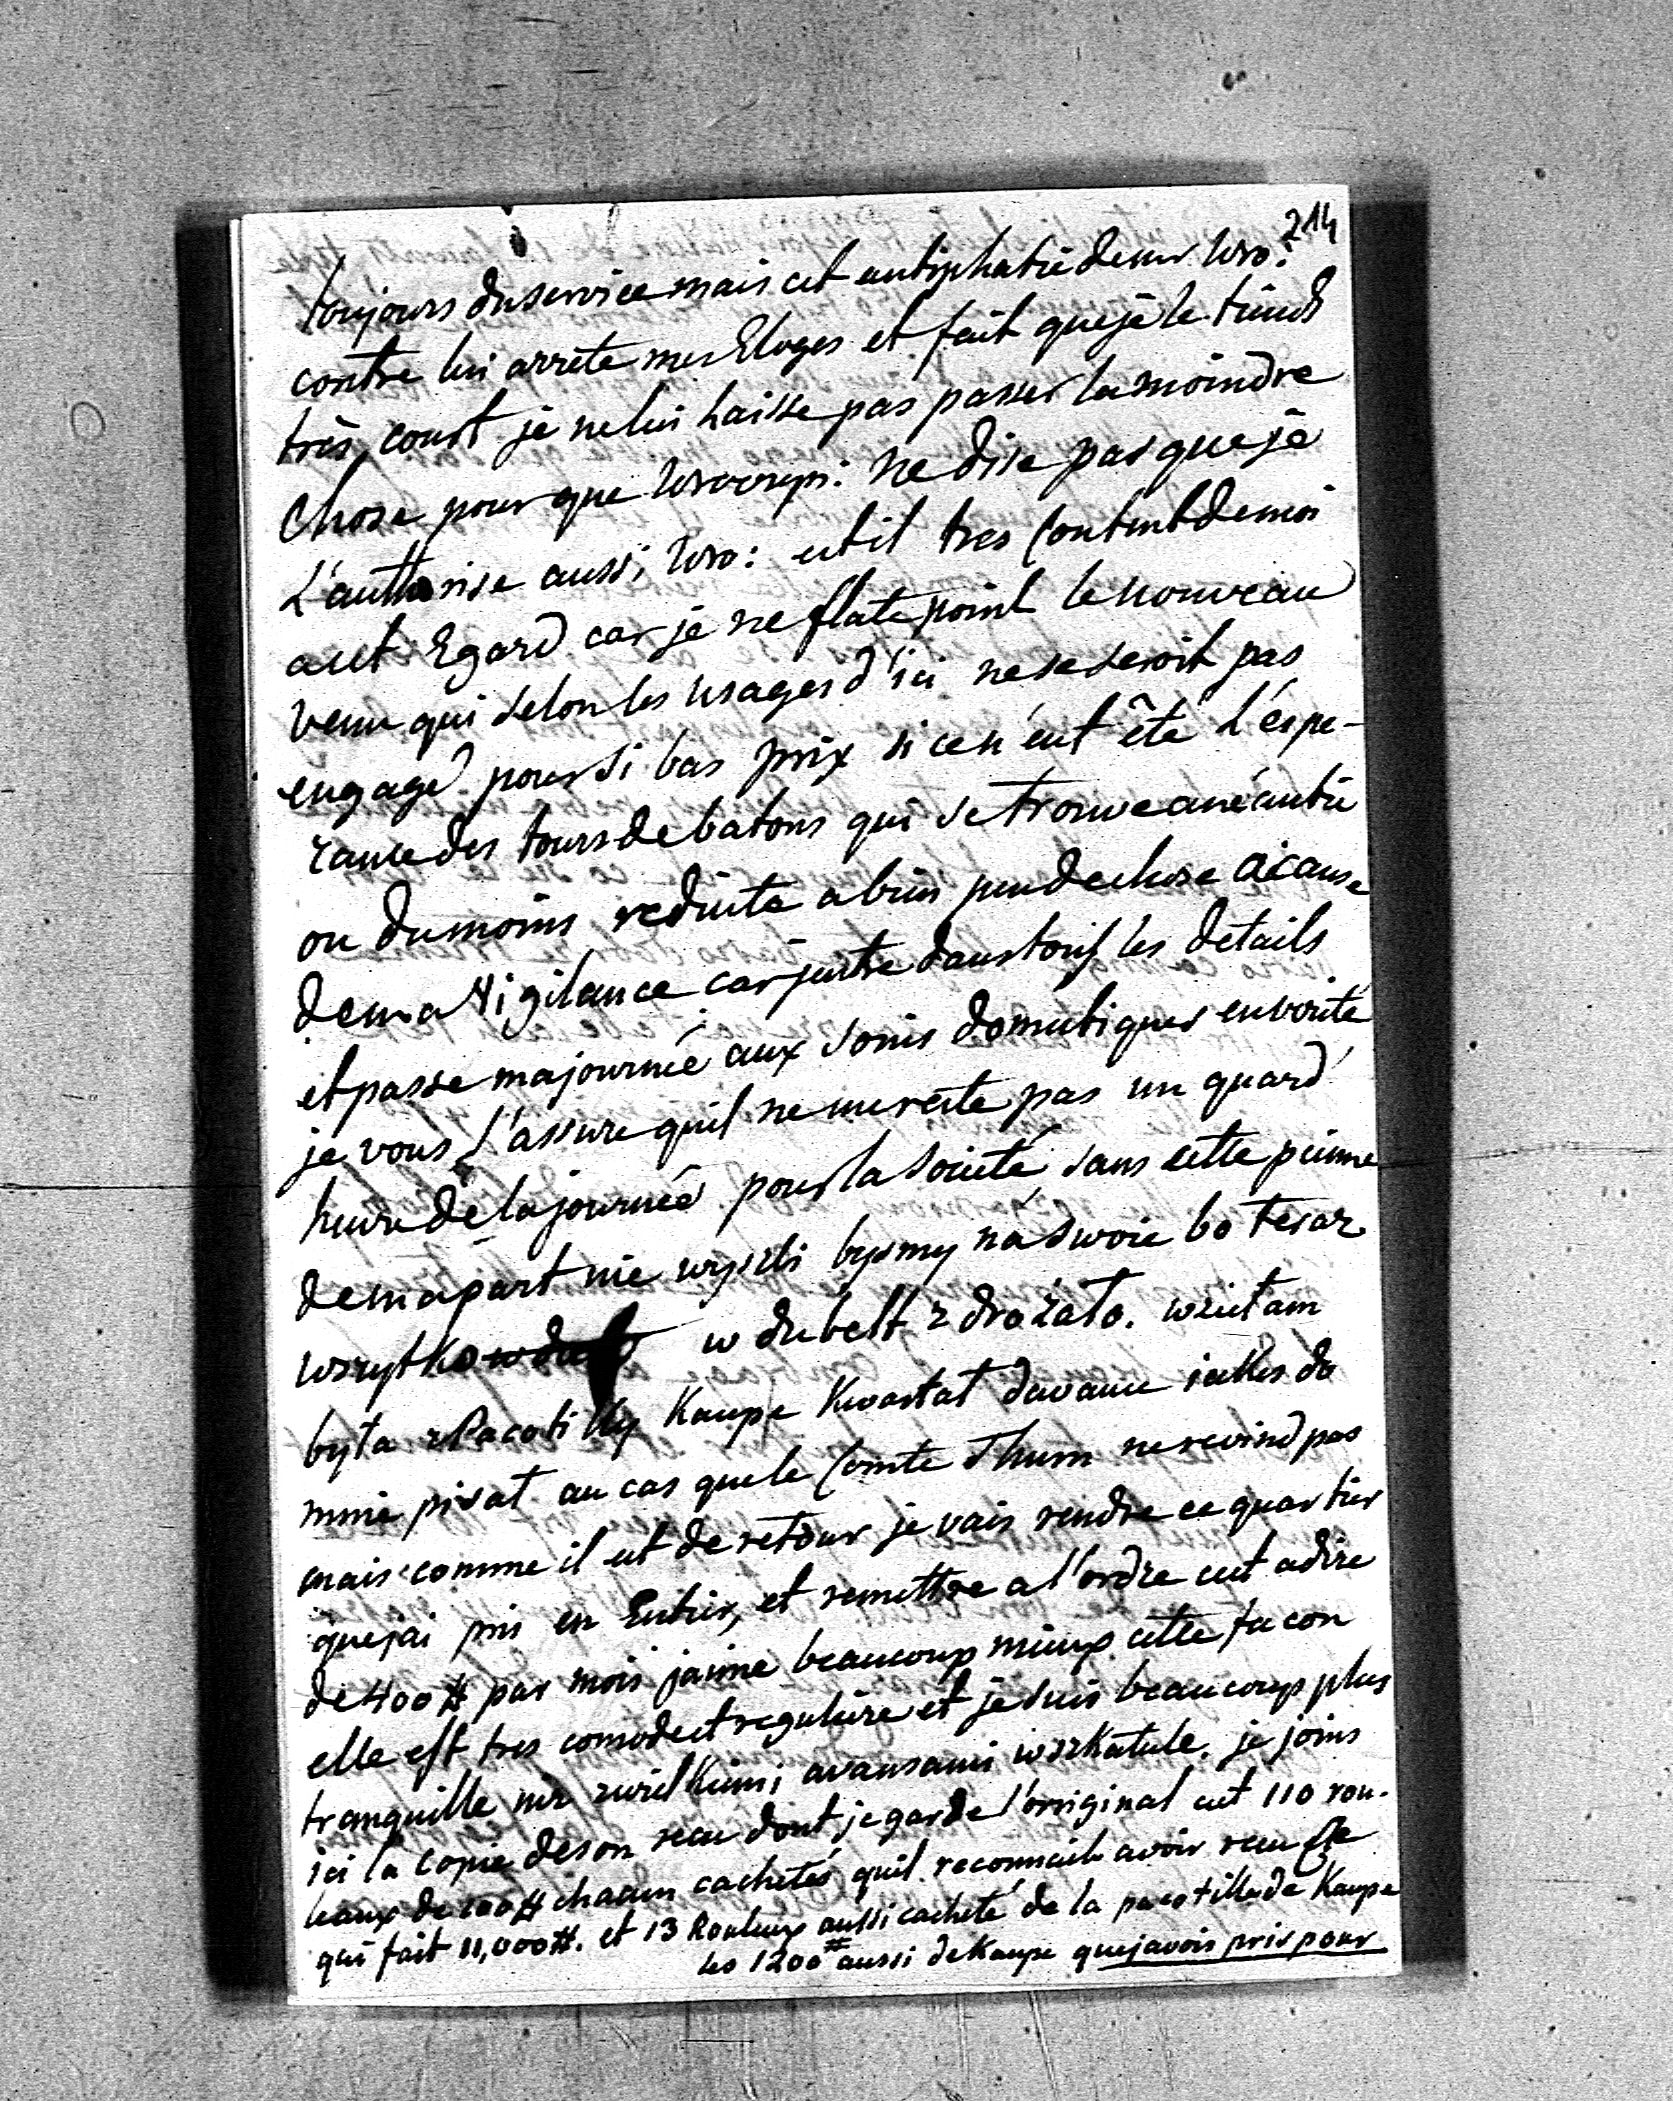 214
toujours du service mais cet antiphatie de mr Wro:
contre lui arrete mes Eloges et fait que je le tiends
très court je ne lui laisse pas passer la moindre
Chose pour que ne dise pas que je
L'authorise aussi, Wro: est il tres content de moi
a cet Egard car je ne flate point le nouveau
venu qui selon les usages d'ici ne se seroit pas
engagé pour si bas prix si ce n'eut été L'éspe-
rance des tours de batons qui se trouve anéantie
ou du moins reduite a bien peu de chose a cause
de ma Vigilance car j'entre dans tous les details
et passe ma journée aux soins domestiques en verité
je vous l'assure quil ne me reste pas un quard
heure de la journée pour la societé sans cette peinne
de ma part nie wyszli bysmy na swoie bo teraz
wszytko w dubelt zdrożało. wziełam
była z Pacotilly Kaupe Kwartał davance iakes do
mnie pisał au cas que le Comte Thurn ne revind pas
mais comme il est de retour je vais rendre ce quartier
que jai pris en Entier, et remettre a l'ordre cest adire
de 400# par mois jaime beaucoup mieux cette facon
elle est tres comode et reguliere et je suis beaucoup plus
tranquille niz z wielkiemi avansami w szkatule. je joins
ici la copie de son recu dont je garde l'original cest 110 rou-
leaux de 100# chacun cachetés quil reconnait avoir recu
qui fait 11,000#. et 13 Rouleaux aussi cacheté de la pacotille de Kaupe
les 1200# aussi de Kaupe que javois pris pour